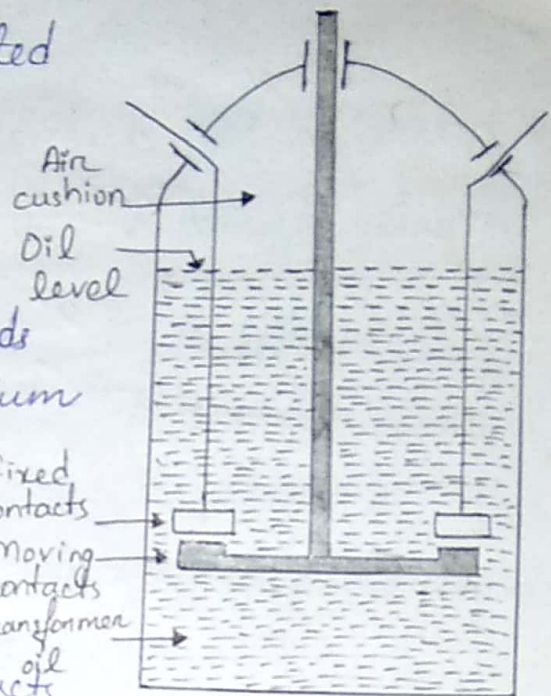 ted
Air
cushion
Oil
level
ds
um
fixed
ontacts
Moving
contacts
ansformer
oil
cts